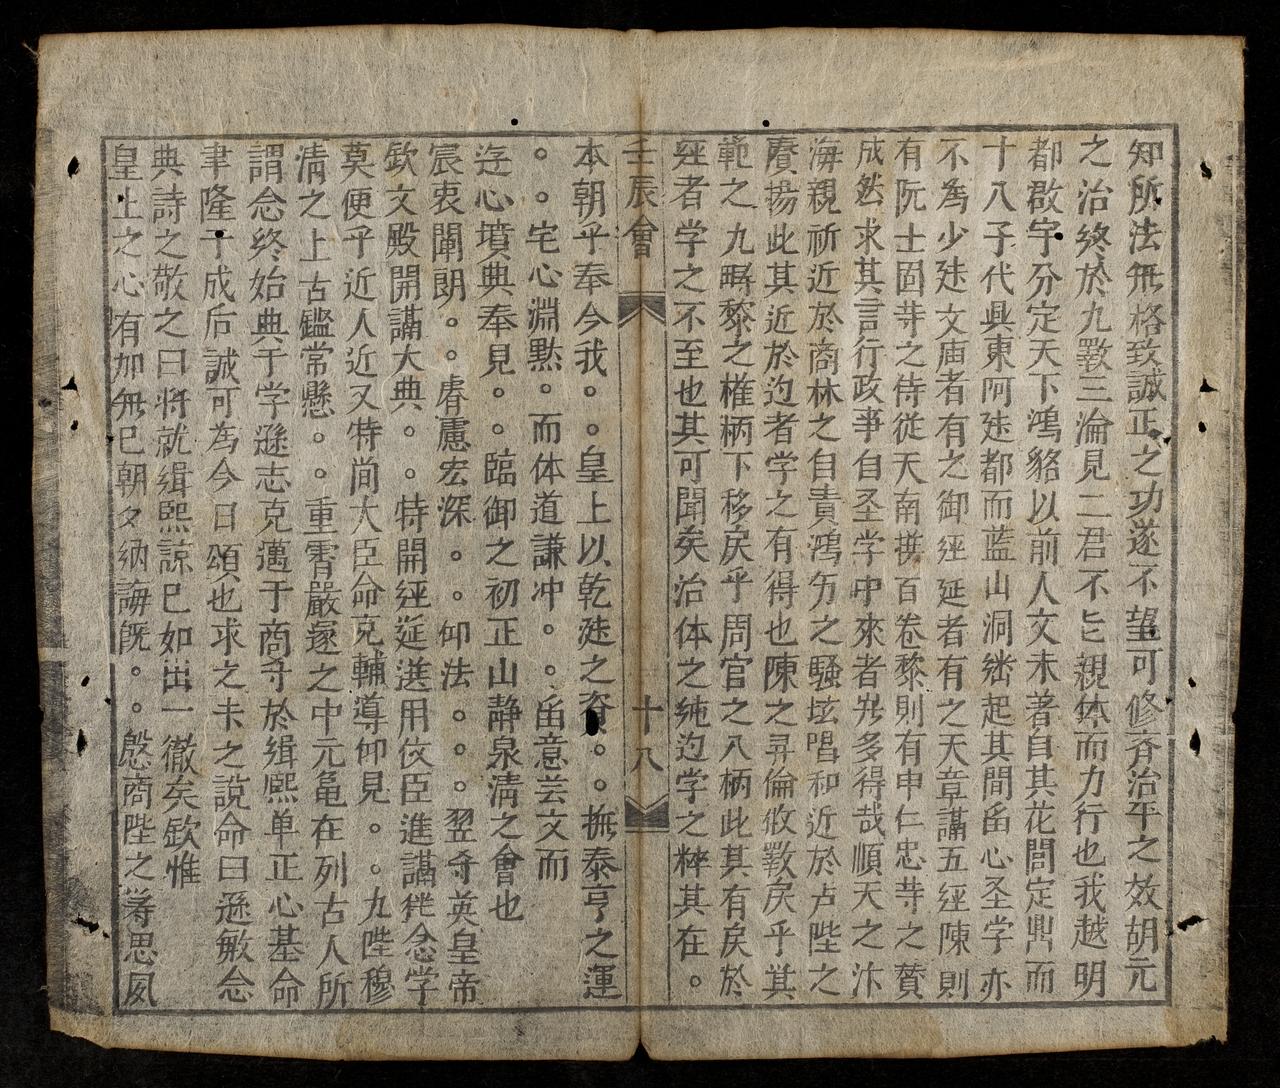 知所法無格致誠正之功遂不望可修齐治平之效胡元
之治終於九斁三淪見二君不㠯親体而力行也我越明
都啟宇分定天下鴻貉以前人文未著自其花閭定鼎而
十八子代興東阿𨒺都而藍山洞𡶨起其間畱心圣学亦
不為少𨒺文庙者有之御𦀇延者有之天章講五經陳則
有阮士固䓁之侍従天南拼百卷黎則有申仁忠䓁之賛
成然求其言行政事自圣学中來者𠀋多得哉順天之汴
海親祈近於商林之自責鴻㐌之騷坛唱和近於卢陛之
賡揚此其近於边者学之有得也陳之昇倫攸斁戾乎其
範之九畴黎之権柄下移戾乎周官之八柄此其有戾於
𦀇者学之不至也其可聞矣治体之純边学之粹其在。
壬辰會
十八
本朝乎奉今我。。皇上以乾𨒺之資。。撫泰亨之運
。。宅心淵黙。而体道謙冲。。畱意芸文而
迩心墳典奉見。。臨御之初正山静泉清之會也
宸衷闡朗。。睿慮宏深。。仰法。。翌守英皇帝
欽文殿開講大典。。特開經筵選用伎臣進講継念学
莫便乎近人近又特简大臣命克輔導仰見。。九陛穆
清之上古鑑常懸。。重霄嚴邃之中元亀在列古人所
謂念終始典于学遜志克邁于商守於緝熙单正心基命
聿隆于成后誠可為今日頌也求之未之說命曰遜敏念
典詩之敬之曰将就緝熙諒已如出一徹矣欽惟
皇上之心有加無已朝夕納誨旣。。慇商陛之籌思夙